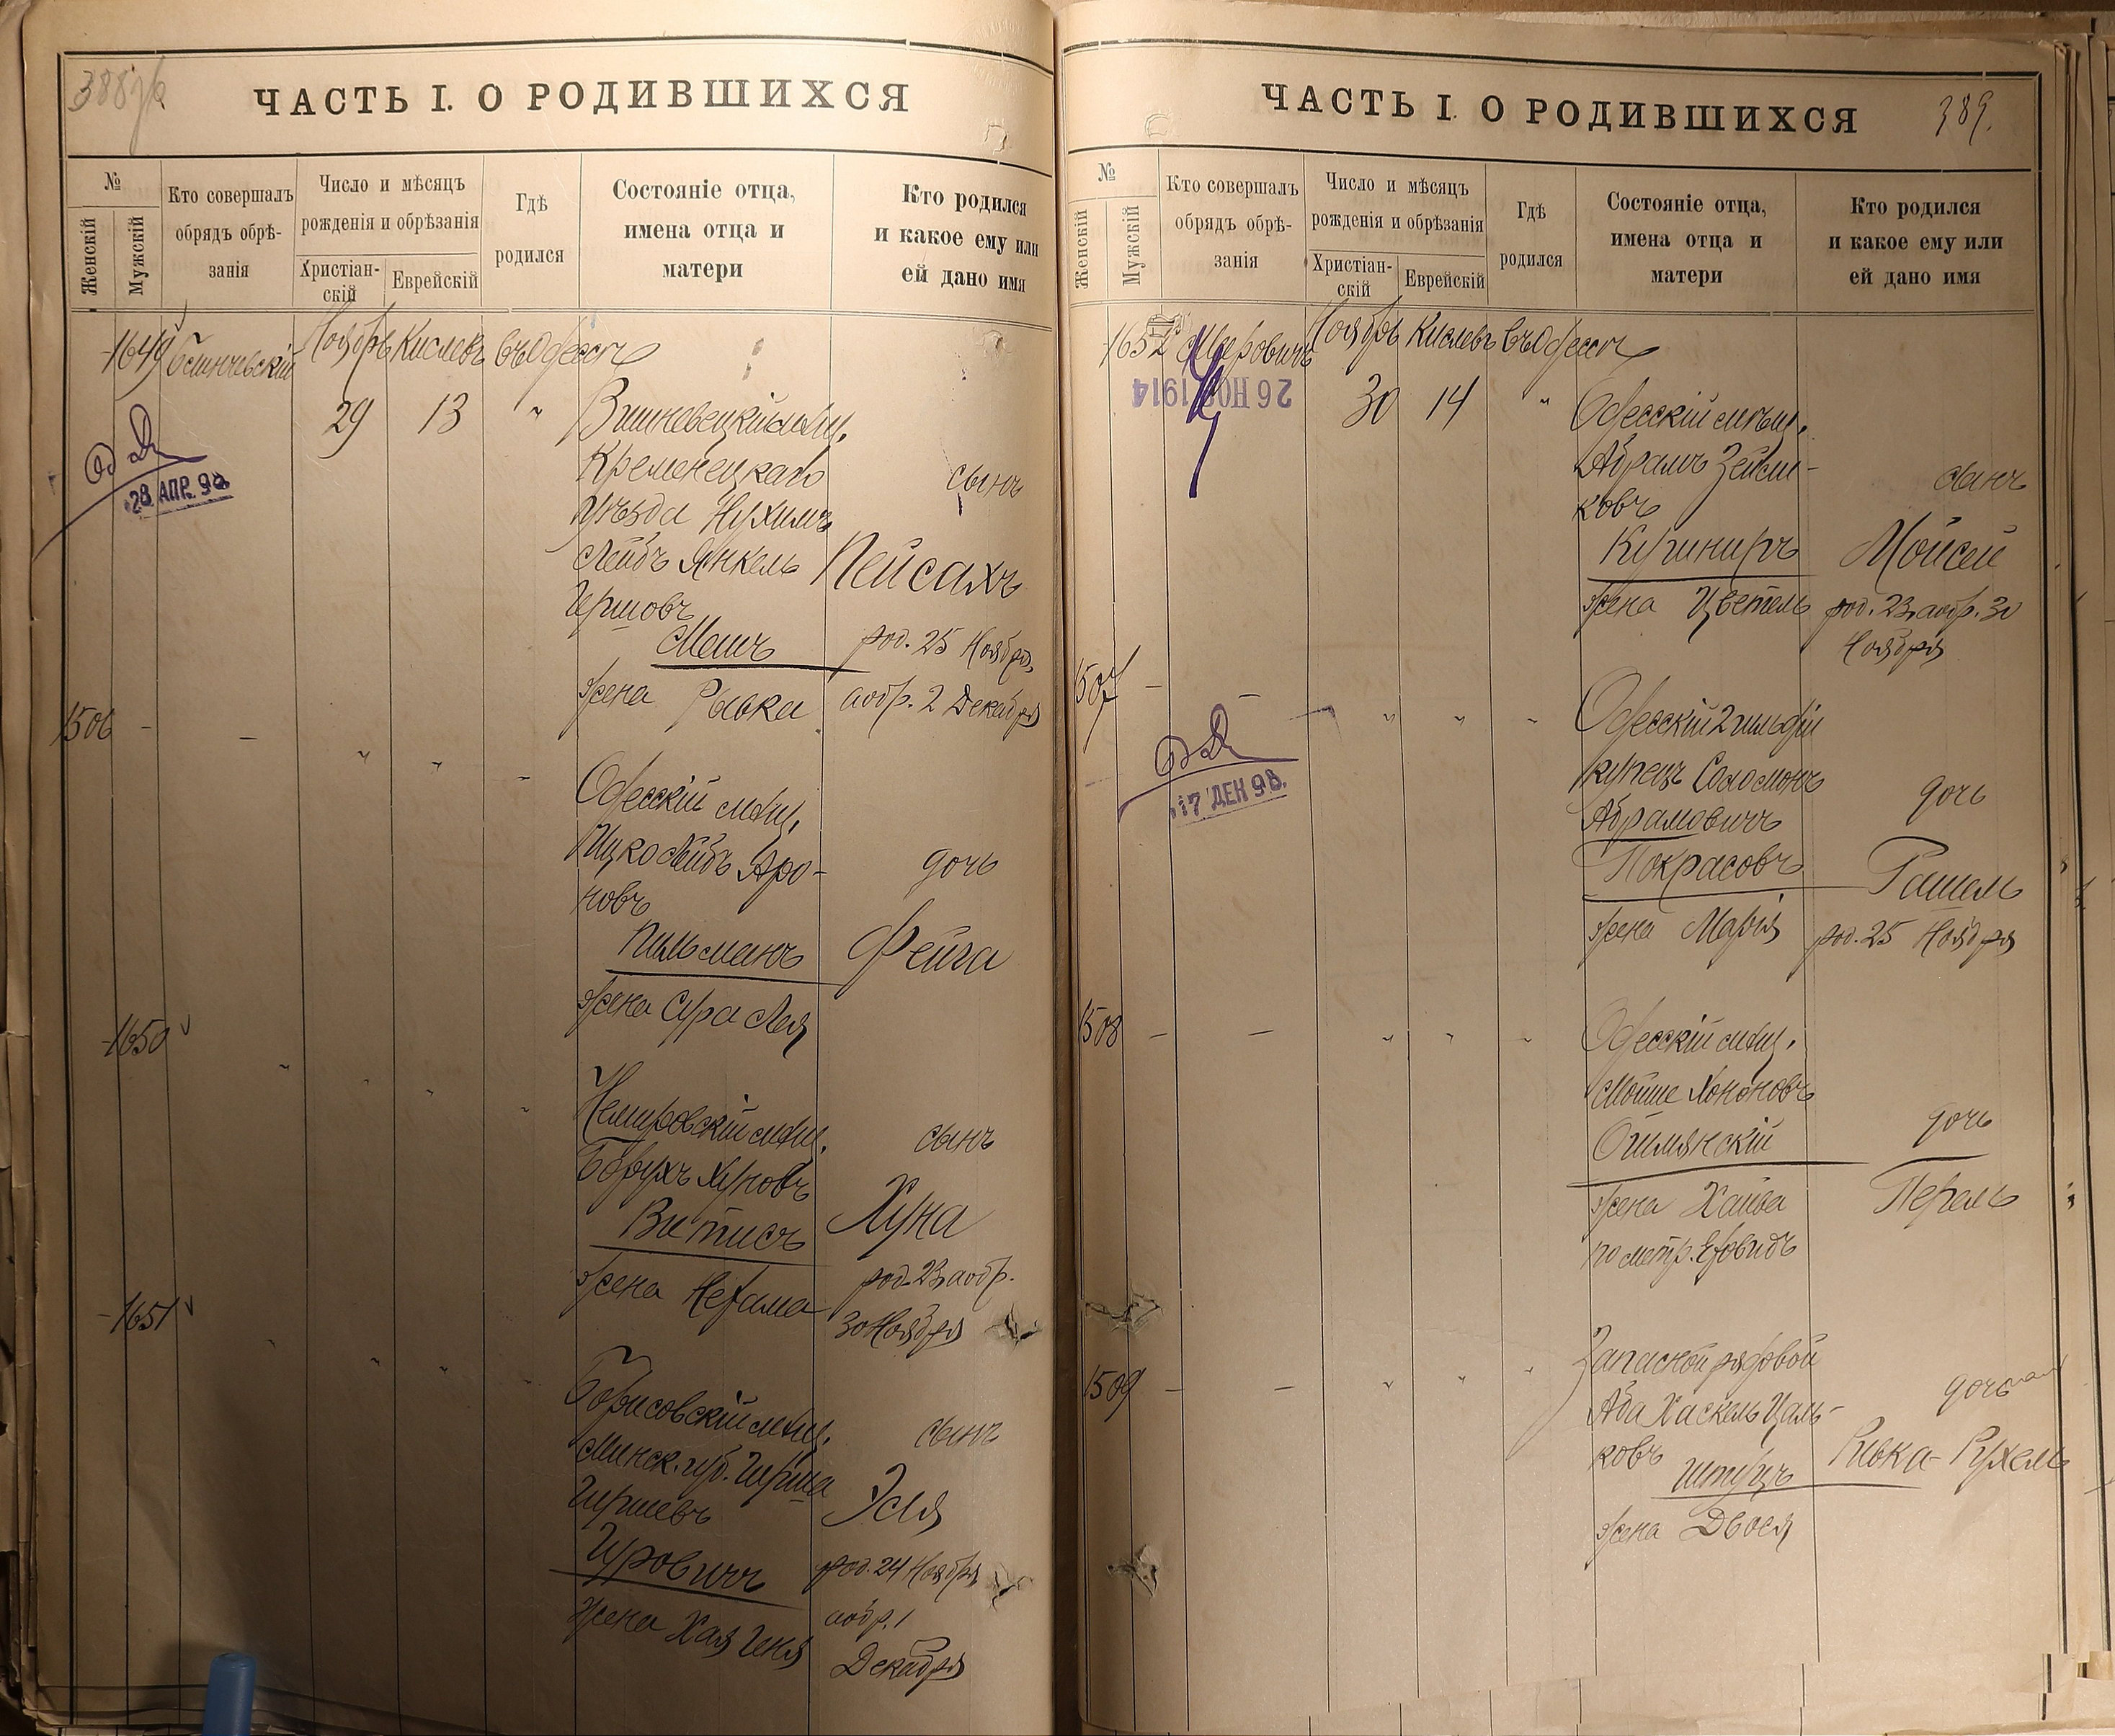 388об
ЧАСТЬ I. О РОДИВШИХСЯ
№
Женскій
Мужскій
Кто совершалъ
обрядъ обрѣ-
занія
Число и мѣсяцъ
рожденія и обрѣзанія
Христіан-
скій
Еврейскій
Гдѣ
родился
Состояніе отца,
имена отца и
матери
Кто родился
и какое ему или
ей дано имя
1649
Ноябрь Кислевъ въ Одессѣ
29 13 "
28 АПР. 98
Вишневецкій мѣщ.
Кременецкаго
уѣзда Нухимъ
Лейбъ Янкель
Гершовъ
Мешъ
жена Рывка
сынъ
Пейсахъ
род. 25 Ноября,
аобр. 2 Декабря
1506 - - " " "
Одесскій мѣщ.
Ицко Лейбъ Аро-
новъ
Пильманъ
жена Сура Лея
дочь
Фейга
1650 " " " "
Немировскій мѣщ.
Борухъ Хуновъ
Витисъ
жена Нехама
сынъ
Хуна
род. 23, аобр.
30 Ноября
1651 " " " "
Борисовскій мѣщ.
Минск. губ. Гирша
Гиршевъ
Гуровичъ
жена Хая Геня
сынъ
Эля
род. 24 Ноября
аобр. 1
Декабря
ЧАСТЬ I. О РОДИВШИХСЯ
389.
№
Женскій
Мужскій
Кто совершалъ
обрядъ обрѣ-
занія
Число и мѣсяцъ
рожденія и обрѣзанія
Христіан-
скій
Еврейскій
Гдѣ
родился
Состояніе отца,
имена отца и
матери
Кто родился
и какое ему или
ей дано имя
1652 Меровичъ Ноябрь Кислевъ въ Одессѣ
26 НОЯ 1914
30 14 "
Одесскій мѣщ.
Абрамъ Зейли-
ковъ
Кушниръ
жена Цветель
сынъ
Мойсей
род. 23, аобр. 30
Ноября
1507 - - " " "
17 ДЕК 98.
Одесскій 2 гильдіи
купецъ Соломонъ
Абрамовичъ
Покрасовъ
жена Марія
дочь
Рашель
род. 25 Ноября
1508 - - " " "
Одесскій мѣщ.
Мойше Хононовъ
Ошмянскій
жена Хайва
по метр.
дочь
Перель
1509 - - " " "
Запасной рядовой
Аба Хаскель Цаль-
ковъ
жена Двося
дочь
Рывка-Рухель